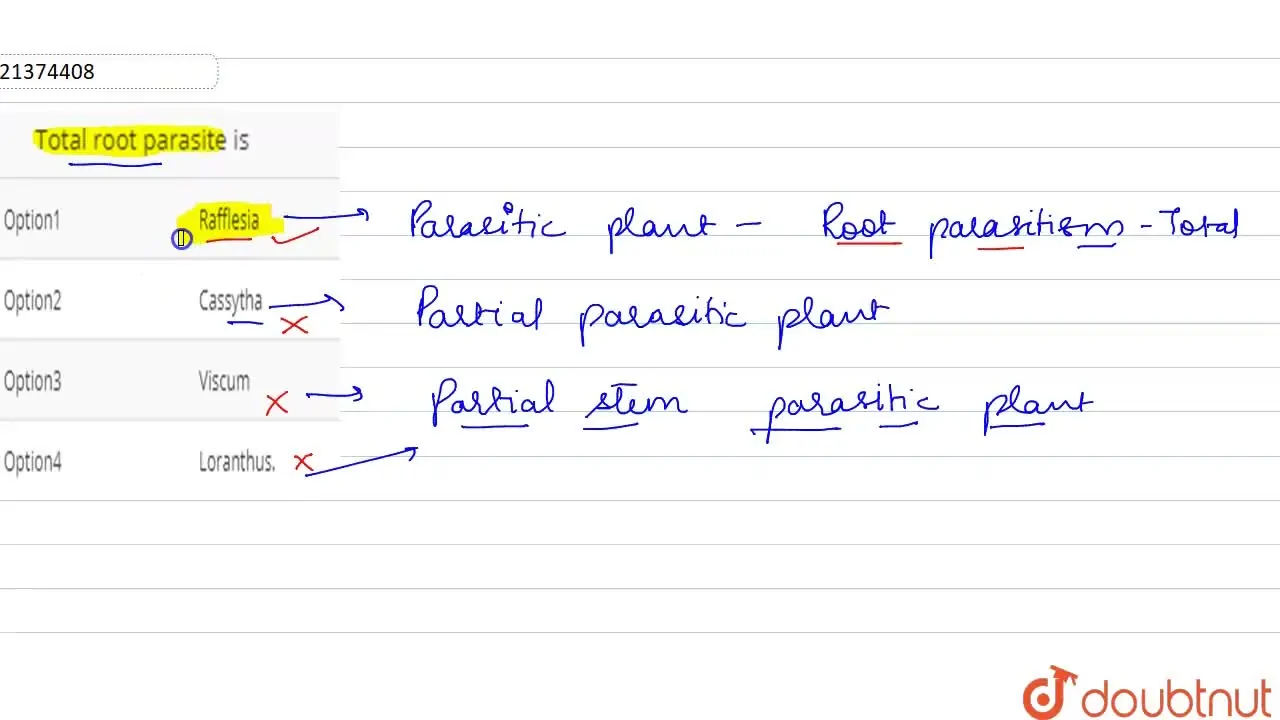 21374408
Total root parasite is
Option1 Rafflesia Parasitic plant - Root parasitism - Total
Option2 Cassytha Partial parasitic plant
Option3 Viscum Partial stem parasitic plant
Option4 Loranthus.
doubtnut